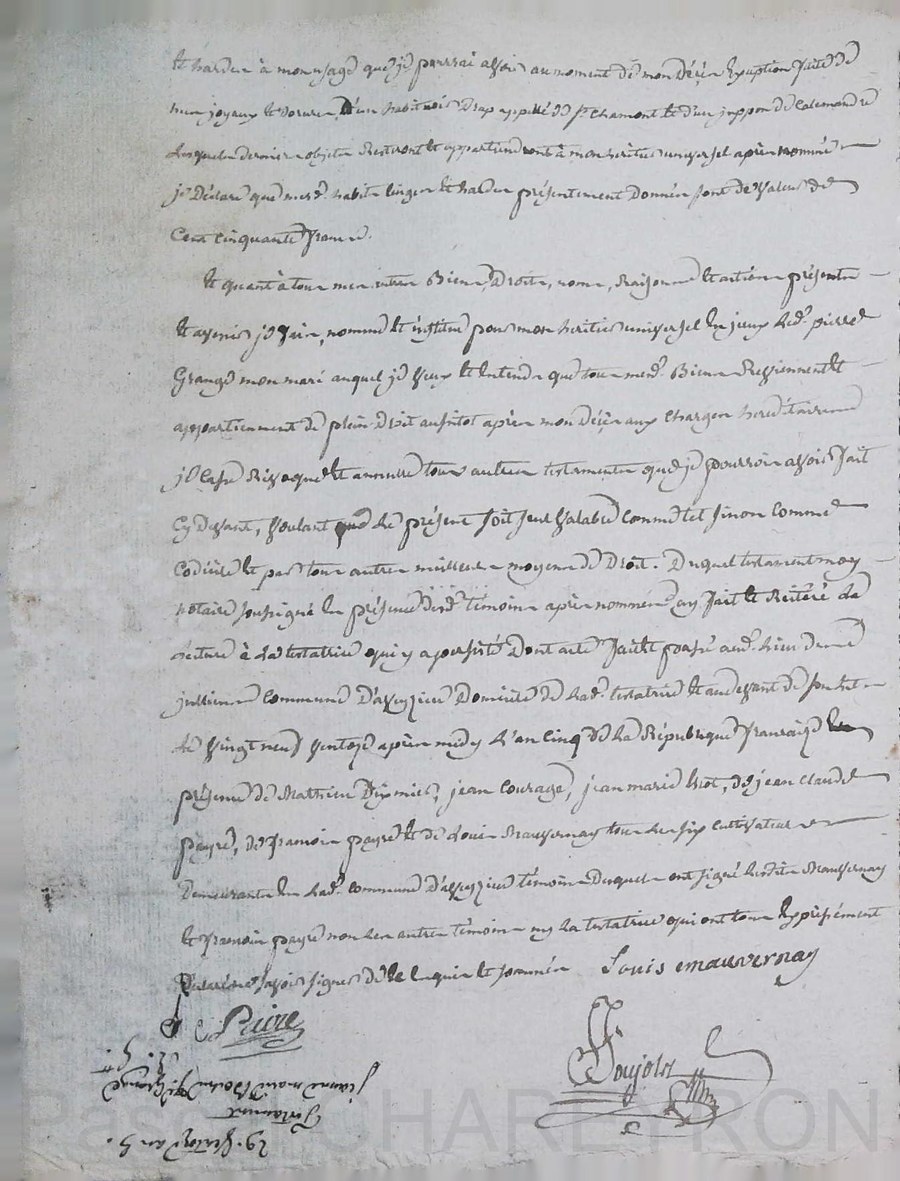 et hardes à mon usage que je pourrai avoir au moment de mon décès Exception faite de
mes joyaux et dorures, d'un habit noir drap appellé de St. Chamont et d'un juppon de Calemandre
lesquels derniers objets resteront et appartiendront à mon heritier universel après nommé
je Déclare que mesd. habits linges et hardes présentement Donnés sont de valeur de
Cent cinquante francs.
Et quant à tous mes autres Biens, Droits, noms, Raisons et actions présents
et avenir je fais, nomme et institue pour mon heritier universel led. pierre
Grange mon mari auquel je veux et entends que tous mesd. Biens reviennent et
appartiennent de plein droit aussitot après mon décès aux charges hereditaires
je Casse Revoque et annulle tous autres testaments que je pourrois avoir fait
Cy devant, voulant que le présent soit seul valable comme tel sinon comme
Codicile et par tous autres meilleurs moyens de Droit. Duquel testament moy
notaire soussigné En présence desd. témoins après nommés ay fait et Reitéré la
lecture à la testatrice qui y a persisté Dont acte fait et passé aud. lieu
commune D'aveyzieu Domicile de lad. testatrice et au devant de son lit
le vingt neuf ventose après midy L'an Cinq de la République française En
présence de Mathieu jean Courage, jean marie de jean claude
payre, de françois payre et de Louis Mauvernay tous les six cultivateurs
Demeurants En lad. commune D'aveyzieu témoins Desquels ont signé lesdits Mauvernay
et françois payre non les autres témoins ny la testatrice qui ont tous Expressément
Déclaré savoir signer de ce Enquis et sommés Louis mauvernay
Poujolas
29. Ventose an 5.
Testament
jeanne marie
Pascal CHAREYRON